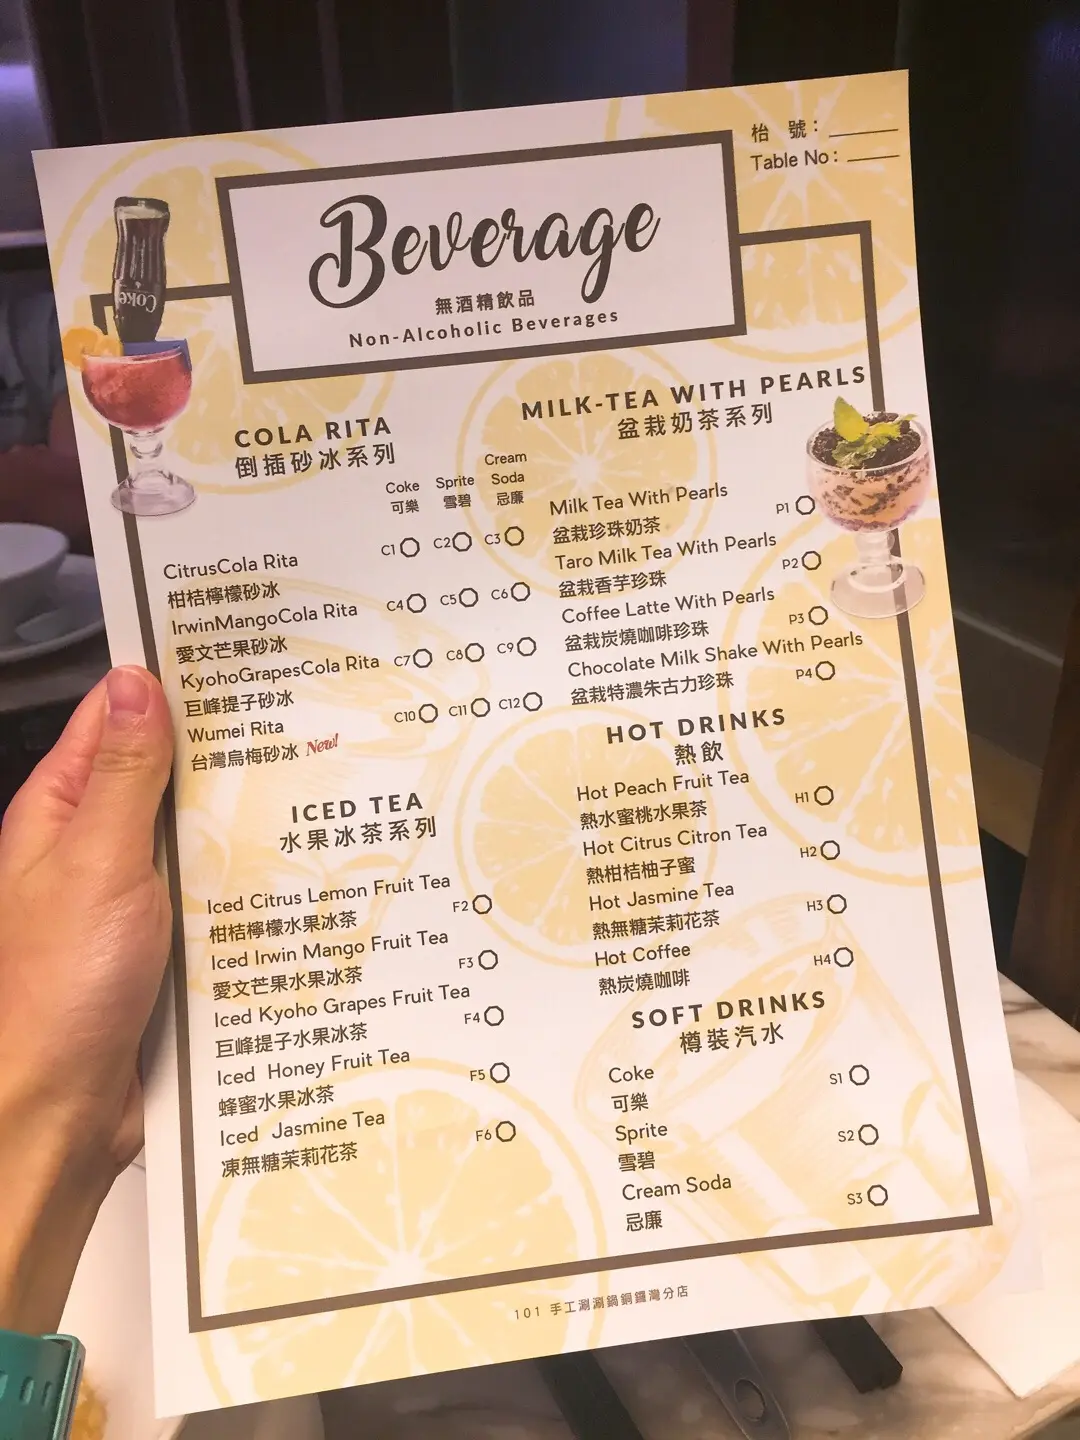 枱 號：
Table No：
Beverage
無酒精飲品
Non-Alcoholic Beverages
Coke
COLA RITA
倒插砂冰系列
Coke 可樂
Sprite 雪碧
Cream Soda 忌廉
CitrusCola Rita C1 C2 C3
柑桔檸檬砂冰
IrwinMangoCola Rita C4 C5 C6
愛文芒果砂冰
KyohoGrapesCola Rita C7 C8 C9
巨峰提子砂冰
Wumei Rita C10 C11 C12
台灣烏梅砂冰 New!
ICED TEA
水果冰茶系列
Iced Citrus Lemon Fruit Tea
柑桔檸檬水果冰茶 F2
Iced Irwin Mango Fruit Tea
愛文芒果水果冰茶 F3
Iced Kyoho Grapes Fruit Tea
巨峰提子水果冰茶 F4
Iced Honey Fruit Tea
蜂蜜水果冰茶 F5
Iced Jasmine Tea
凍無糖茉莉花茶 F6
MILK-TEA WITH PEARLS
盆栽奶茶系列
Milk Tea With Pearls P1
盆栽珍珠奶茶
Taro Milk Tea With Pearls P2
盆栽香芋珍珠
Coffee Latte With Pearls P3
盆栽炭燒咖啡珍珠
Chocolate Milk Shake With Pearls
盆栽特濃朱古力珍珠 P4
HOT DRINKS
熱飲
Hot Peach Fruit Tea H1
熱水蜜桃水果茶
Hot Citrus Citron Tea H2
熱柑桔柚子蜜
Hot Jasmine Tea H3
熱無糖茉莉花茶
Hot Coffee H4
熱炭燒咖啡
SOFT DRINKS
樽裝汽水
Coke S1
可樂
Sprite S2
雪碧
Cream Soda S3
忌廉
101 手工涮涮鍋銅鑼灣分店